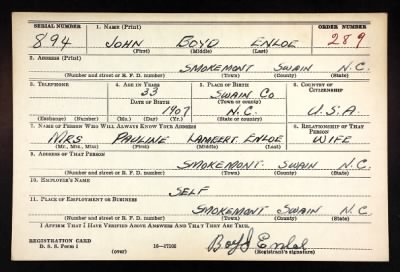 SERIAL NUMBER 1. NAME (Print) ORDER NUMBER
894 JOHN BOYD ENLOE 289
(First) (Middle) (Last)
2. ADDRESS (Print)
SMOKEMONT SWAIN N.C.
(Number and street or R. F. D. number) (Town) (County) (State)
3. TELEPHONE 4. AGE IN YEARS 5. PLACE OF BIRTH 6. COUNTRY OF CITIZENSHIP
33 SWAIN CO
DATE OF BIRTH (Town or county)
1907 N.C. U.S.A.
(Exchange) (Number) (Mo.) (Day) (Yr.) (State or country)
7. NAME OF PERSON WHO WILL ALWAYS KNOW YOUR ADDRESS 8. RELATIONSHIP OF THAT PERSON
MRS PAULINE LAMBERT ENLOE WIFE
(Mr., Mrs., Miss) (First) (Middle) (Last)
9. ADDRESS OF THAT PERSON
SMOKEMONT SWAIN N.C.
(Number and street or R. F. D. number) (Town) (County) (State)
10. EMPLOYER'S NAME
SELF
11. PLACE OF EMPLOYMENT OR BUSINESS
SMOKEMONT SWAIN N.C.
(Number and street or R. F. D. number) (Town) (County) (State)
I AFFIRM THAT I HAVE VERIFIED ABOVE ANSWERS AND THAT THEY ARE TRUE.
REGISTRATION CARD
D. S. S. Form 1 (over) 16-17105 Boyd Enloe
(Registrant's signature)